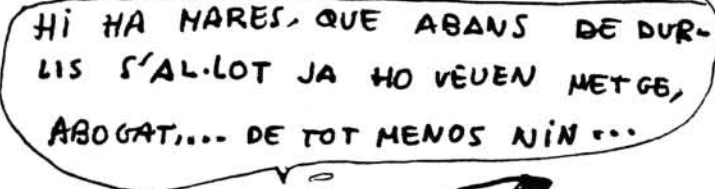 Hi HA MARES, QUE ABANS DE DUR-
LIS S'AL·LOT JA HO VEUEN METGE,
ABOGAT,... DE TOT MENOS NiN ...